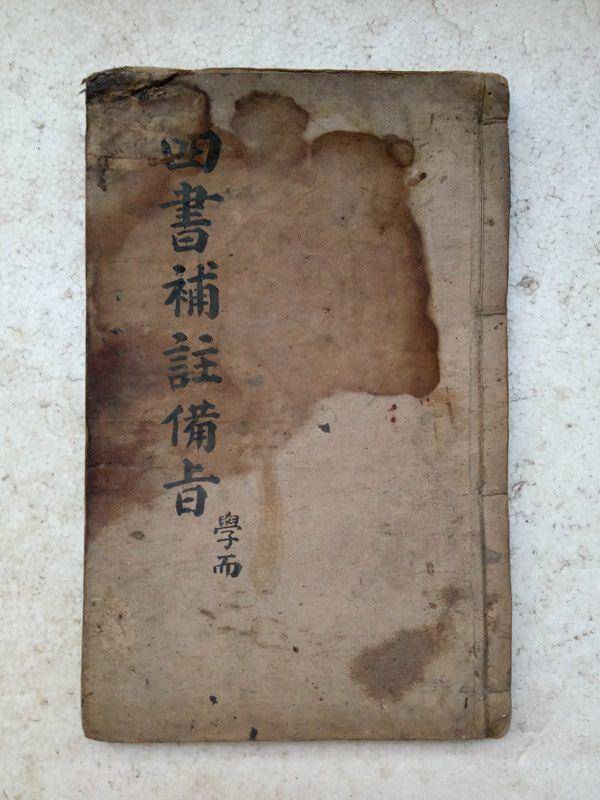 四書補註備旨
學而